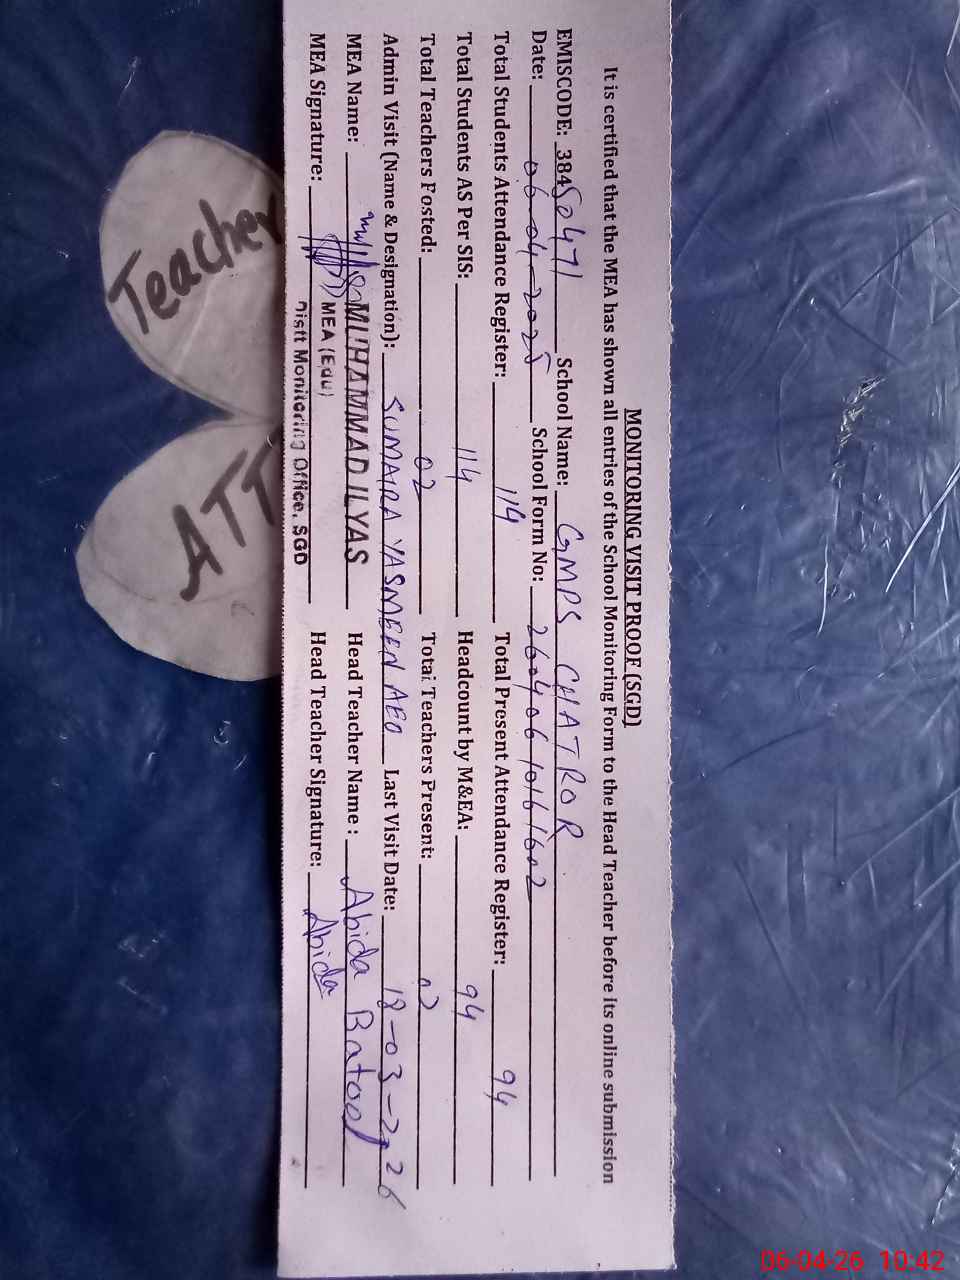 MONITORING VISIT PROOF (SGD)
It is certified that the MEA has shown all entries of the School Monitoring Form to the Head Teacher before its online submission
EMISCODE: 38450471 School Name: GMPS CHATROR
Date: 06-04-2025 School Form No: 26040610161602
Total Students Attendance Register: 114 Total Present Attendance Register: 94
Total Students AS Per SIS: 114 Headcount by M&EA: 94
Total Teachers Posted: 02 Total Teachers Present: 02
Admin Visit (Name & Designation): SUMAIRA YASMEEN AEO Last Visit Date: 18-03-2026
MEA Name: MUHAMMAD ILYAS Head Teacher Name : Abida Batool
MEA Signature: MEA (Edu) Head Teacher Signature: Abida
Distt Monitoring Office, SGD
Teacher
ATT
06-04-26 10:42